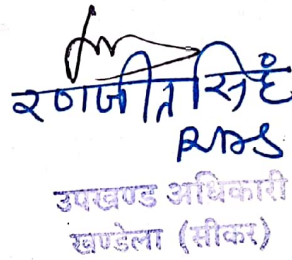 रणजीत सिंह
RAS
उपखण्ड अधिकारी
खण्डेला (सीकर)